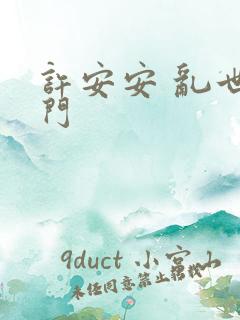 許安安 亂世
門
9duct 小宮山
未經同意禁止轉載